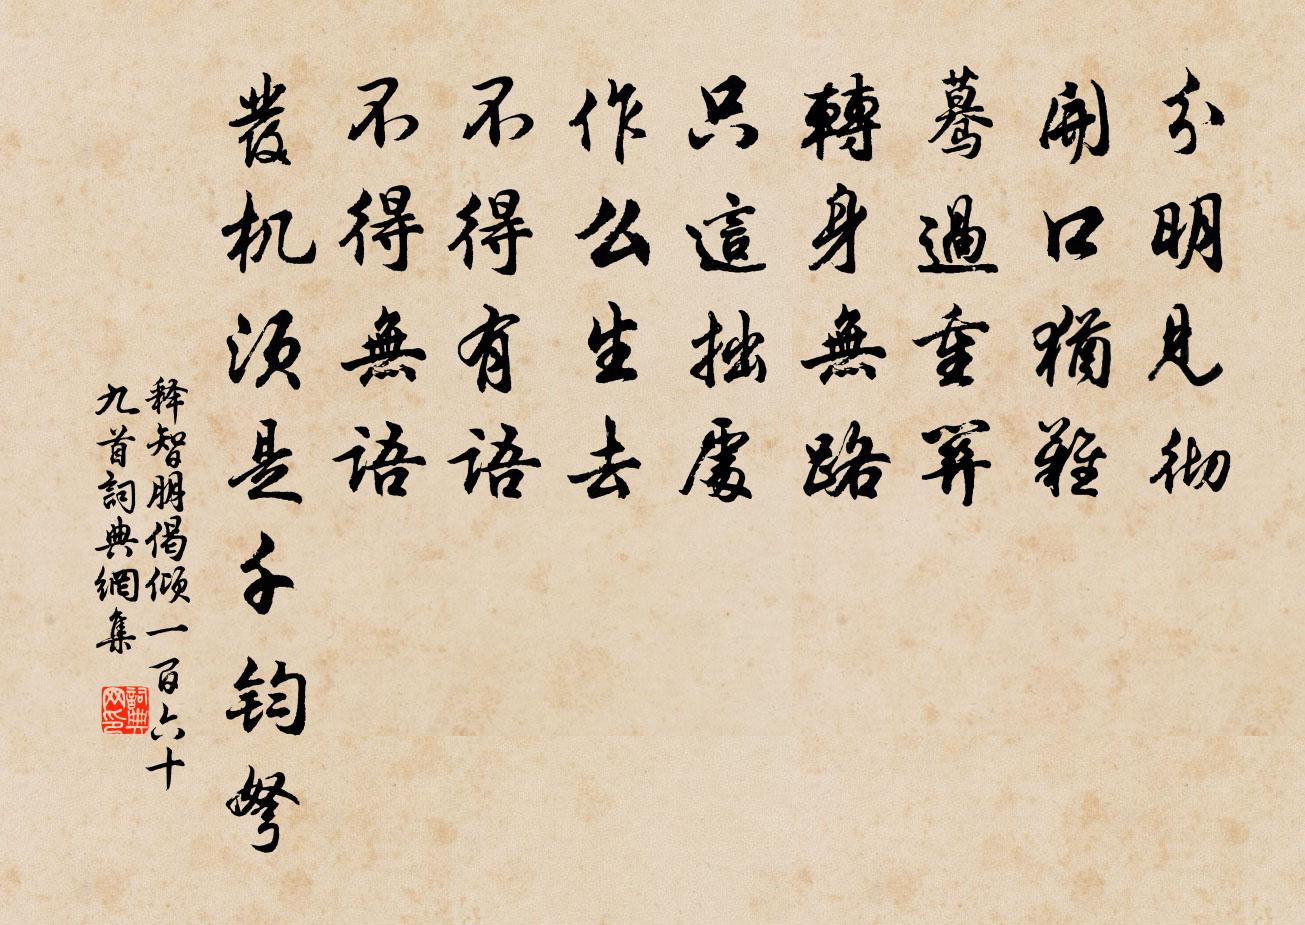 分明見徹
開口猶難
驀過重關
轉身無路
只這拙處
作么生去
不得有語
不得無語
發机須是千鈞弩
释智朋偈倾一百六十
九首詞典網集
詞典
网印